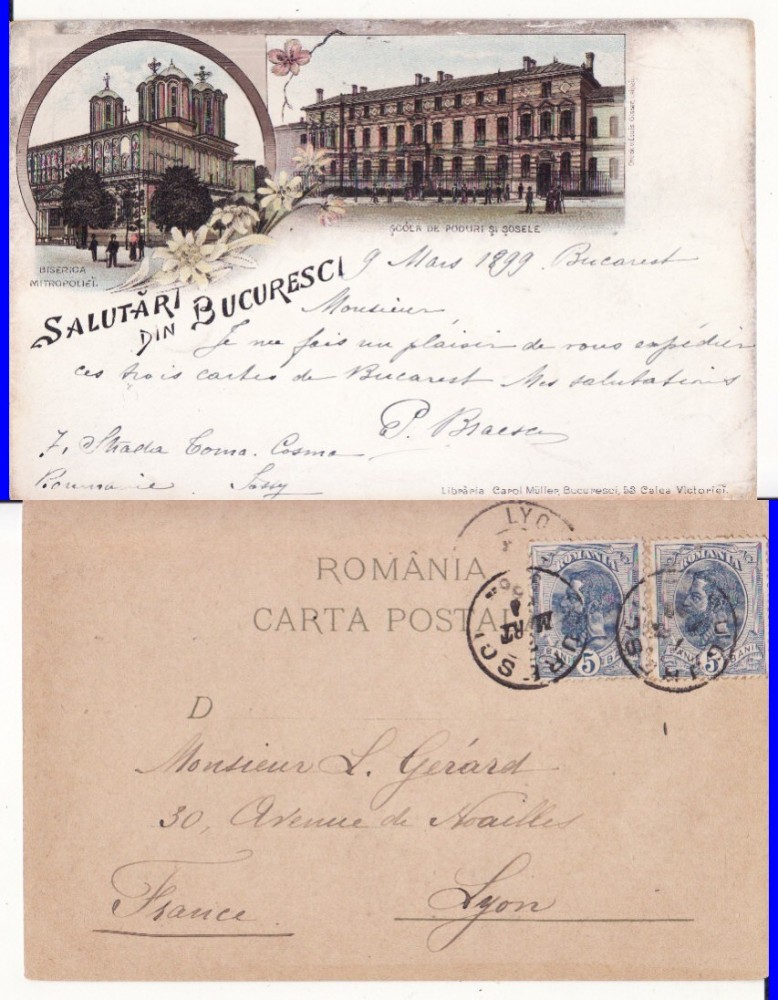 BISERICA
MITROPOLIEĬ.
ȘCÓLA DE PODURI ȘI ȘOSELE
SALUTĂRI
DIN BUCURESCI
9 Mars 1899. Bucarest
Monsieur
Je me fais un plaisir de vous expédier
ces trois cartes de Bucarest Mes salutations
P. Braescu
7, Strada Toma Cosma
Roumanie Jassy
Librăria Carol Müller, Bucuresci, 53 Calea Victorieĭ.
LYO
ROMÂNIA
CARTA POSTAL
ROMANIA
ROMANIA
MRT
BUCURESCI
5
BANI
5
BANI
D
Monsieur L. Gérard
30, Avenue de Noailles
Lyon
France